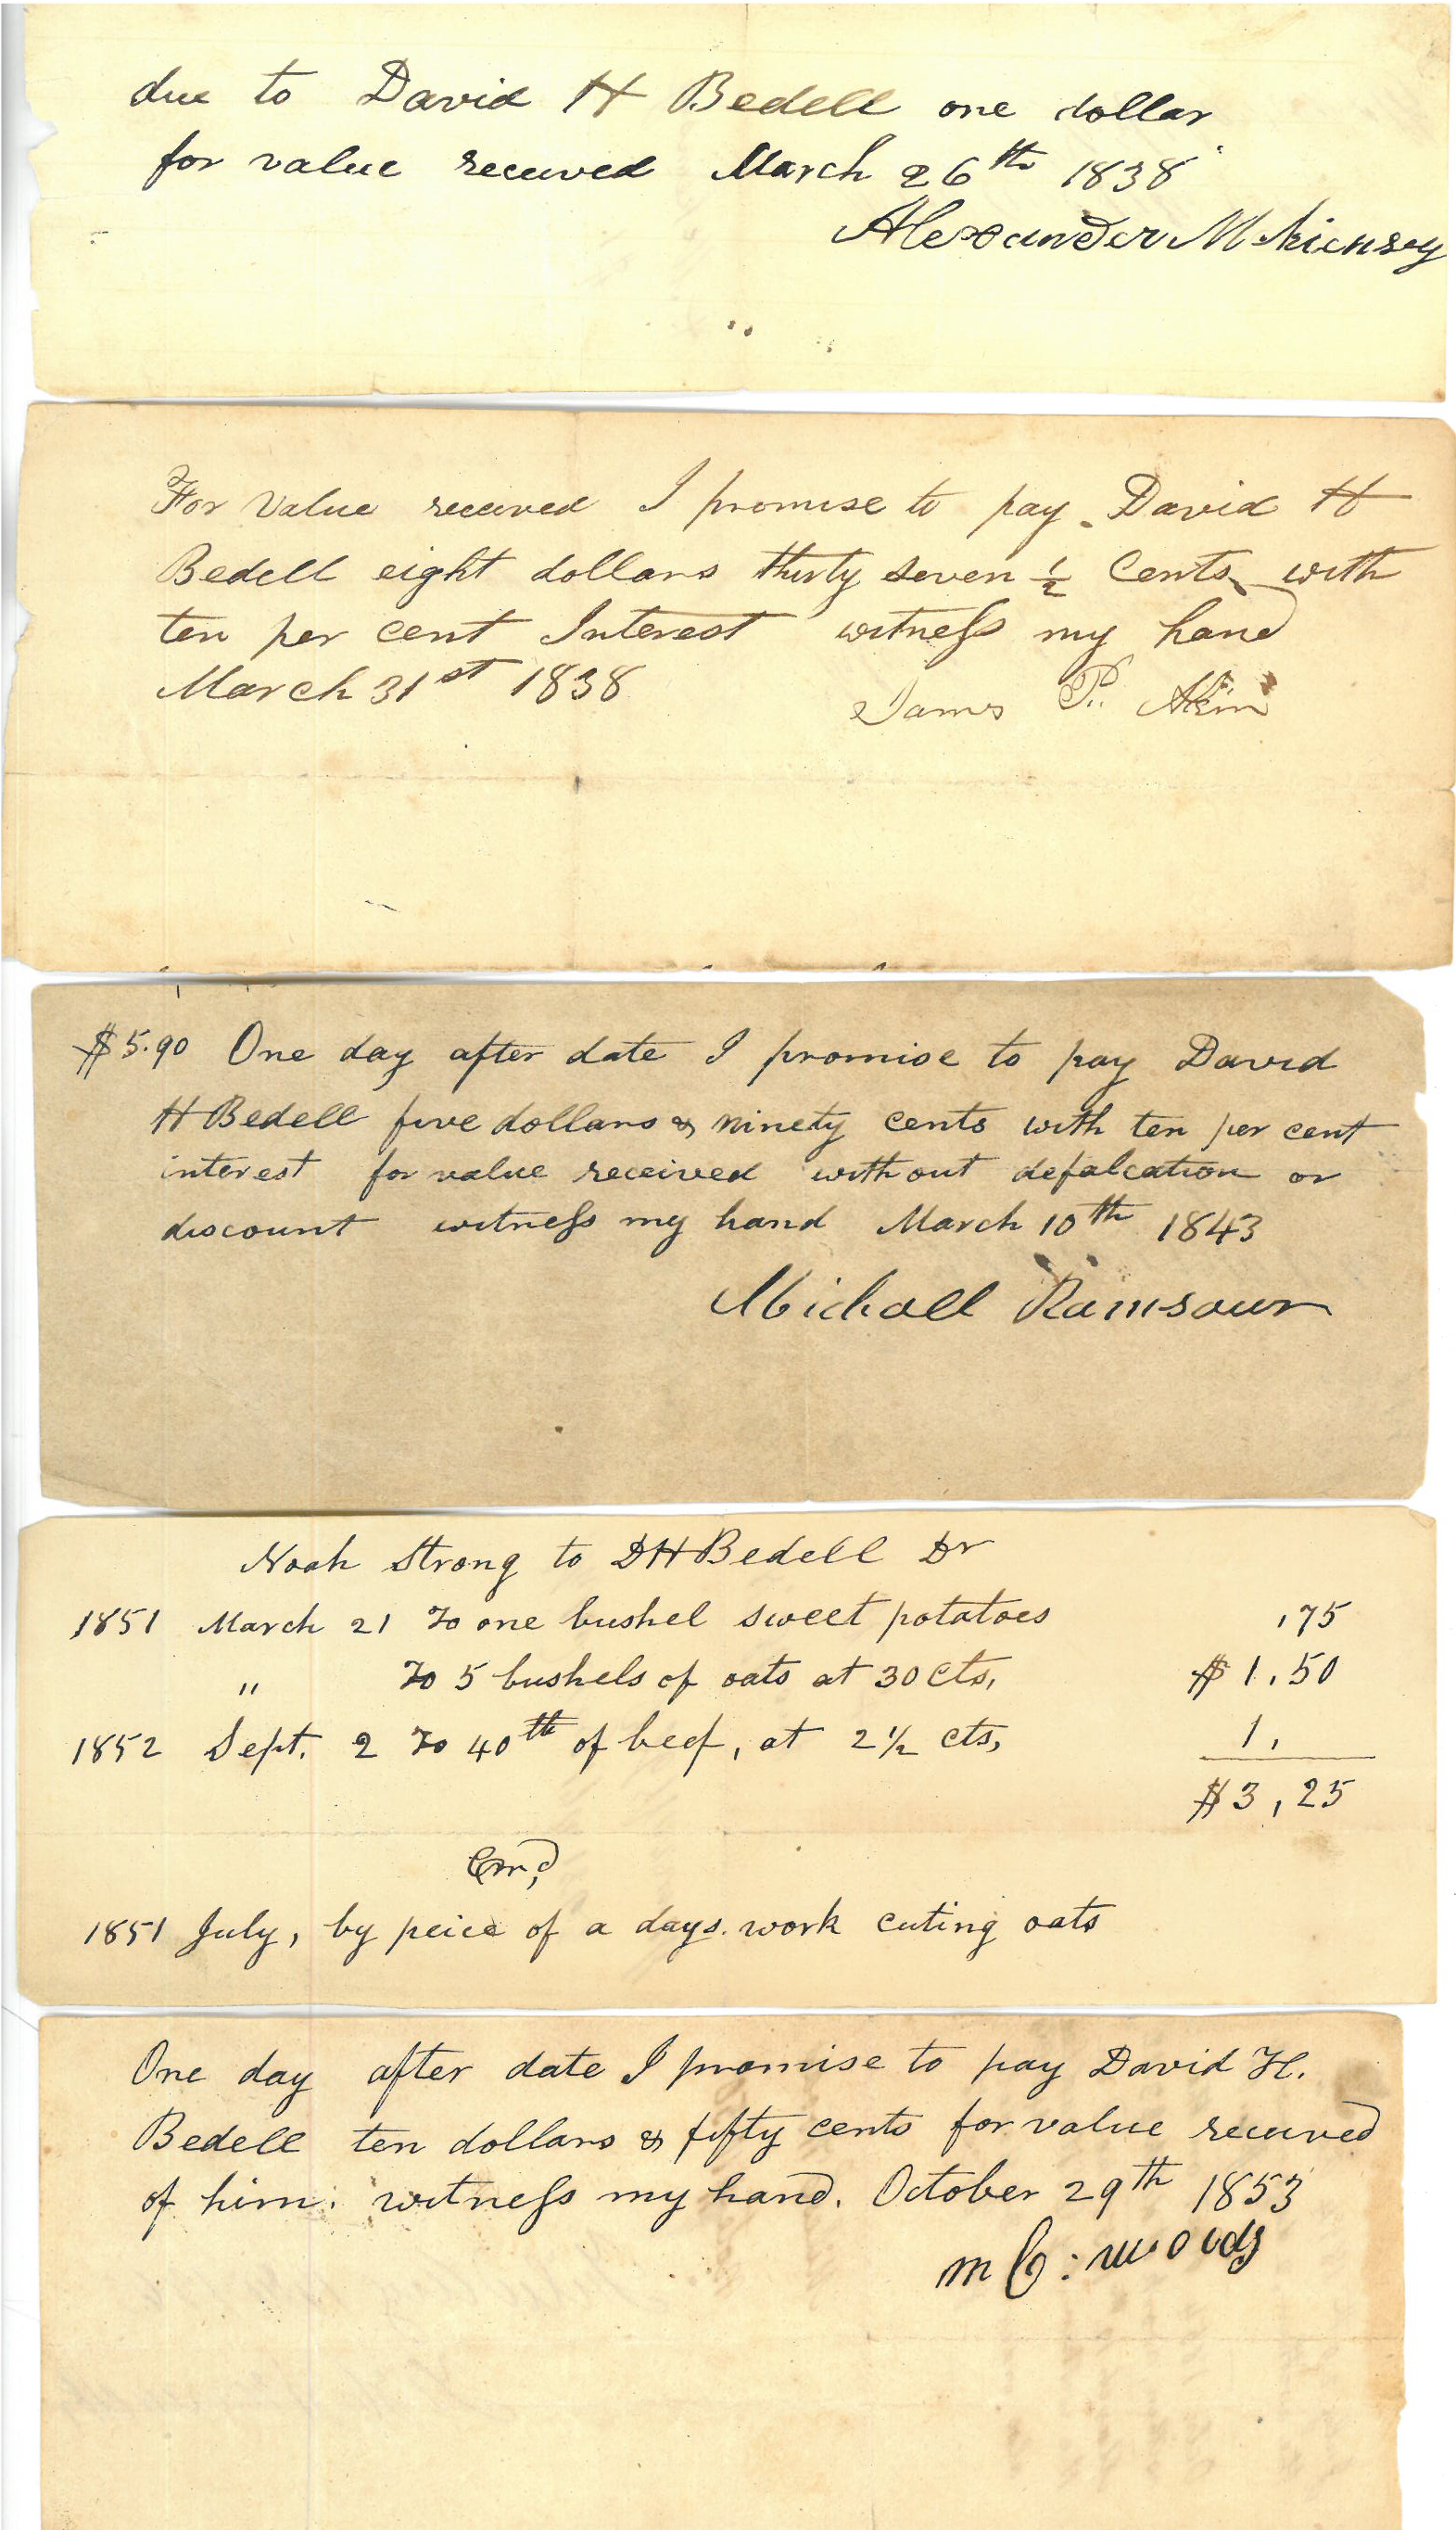 due to David H Bedell one dollar
for value received March 26th 1838
Alexander Mckiensey
For Value received I promise to pay David H
Bedell eight dollars thirty seven ½ Cents with
ten per cent Interest witness my hand
March 31st 1838
James P. Akin
$5.90 One day after date I promise to pay David
H Bedell five dollars & ninety cents with ten per cent
interest for value received without defalcation or
discount witness my hand March 10th 1843
Michael Ramsour
Noah Strong to DH Bedell Dr
1851 March 21 To one bushel sweet potatoes ,75
" To 5 bushels of oats at 30 cts, $1,50
1852 Sept. 2 To 40th of beef, at 2½ cts, 1,
$3,25
1851 July, by peice of a days work cuting oats
One day after date I promise to pay David H.
Bedell ten dollars & fifty cents for value received
of him. witness my hand. October 29th 1853
m C: woods